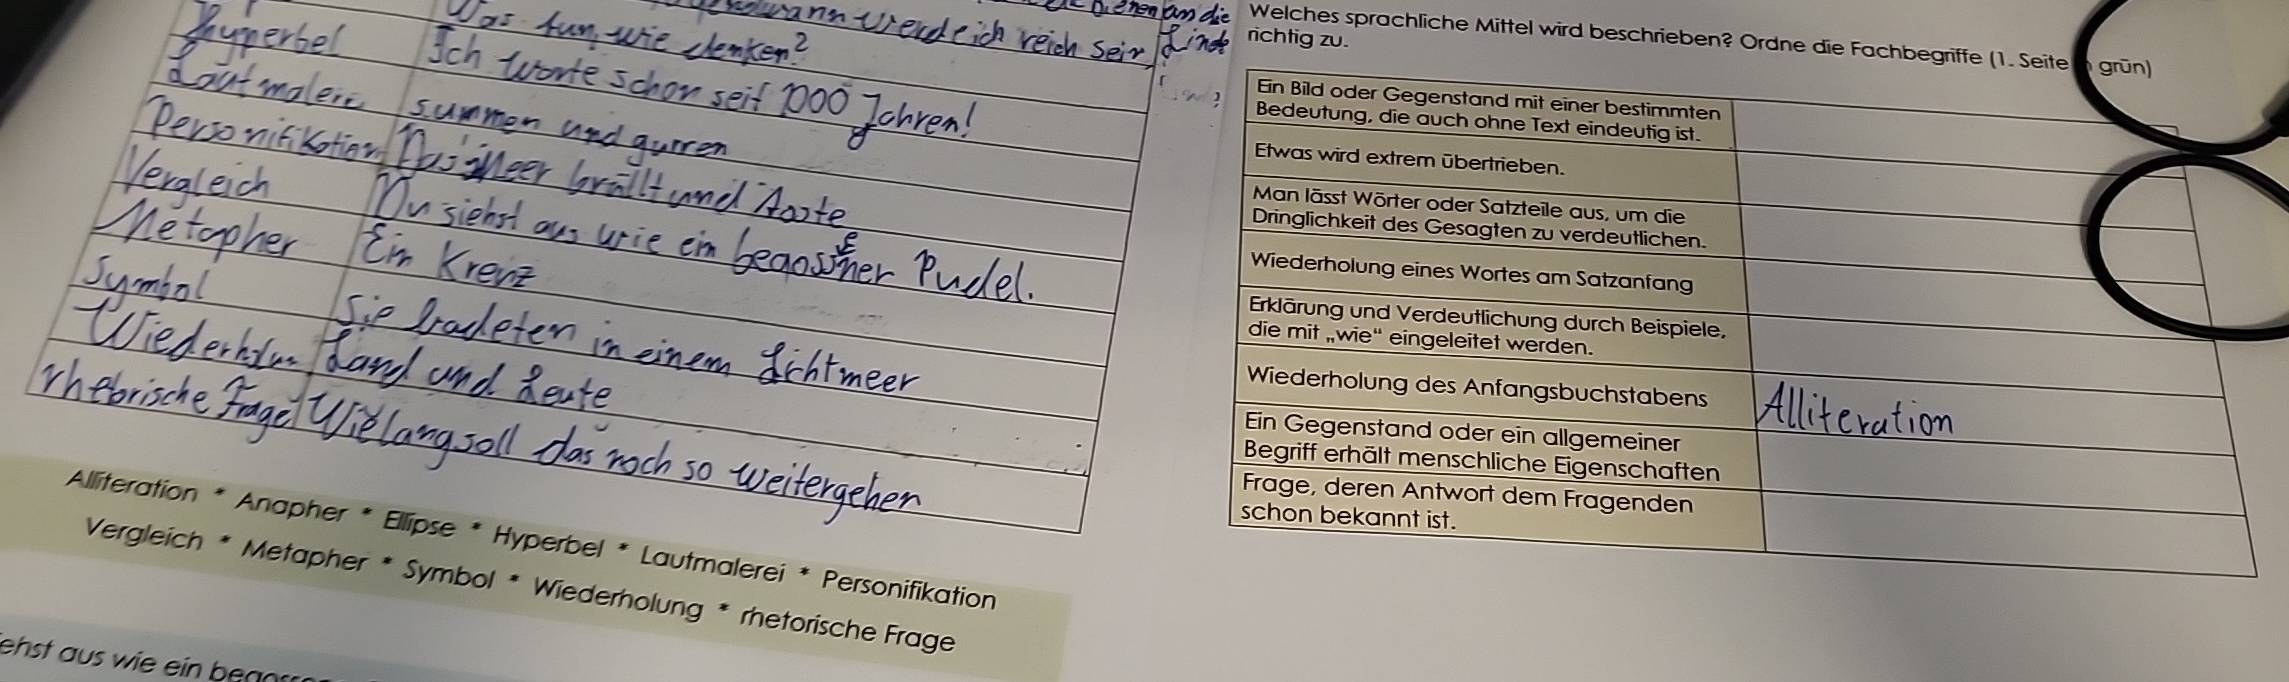 wann werde ich reich sein
Was tun, wie denken?
Hyperbel Ich warte schon seit 1000 Jahren!
Lautmalerei summen und gurren
Personifikation Das Meer brüllt und
Vergleich Du siehst aus wie ein begossener Pudel.
Metapher Ein Kreuz
Symbol Sie badeten in einem Lichtmeer
Land und Leute
rhetorische Frage Wie lang soll das noch so weitergehen
Alliteration * Anapher * Ellipse * Hyperbel * Lautmalerei * Personifikation
Vergleich * Metapher * Symbol * Wiederholung * rhetorische Frage
aus wie ein
Welches sprachliche Mittel wird beschrieben? Ordne die Fachbegriffe (1. Seite grün)
richtig zu.
Ein Bild oder Gegenstand mit einer bestimmten
Bedeutung, die auch ohne Text eindeutig ist.
Etwas wird extrem übertrieben.
Man lässt Wörter oder Satzteile aus, um die
Dringlichkeit des Gesagten zu verdeutlichen.
Wiederholung eines Wortes am Satzanfang
Erklärung und Verdeutlichung durch Beispiele,
die mit „wie“ eingeleitet werden.
Wiederholung des Anfangsbuchstabens Alliteration
Ein Gegenstand oder ein allgemeiner
Begriff erhält menschliche Eigenschaften
Frage, deren Antwort dem Fragenden
schon bekannt ist.